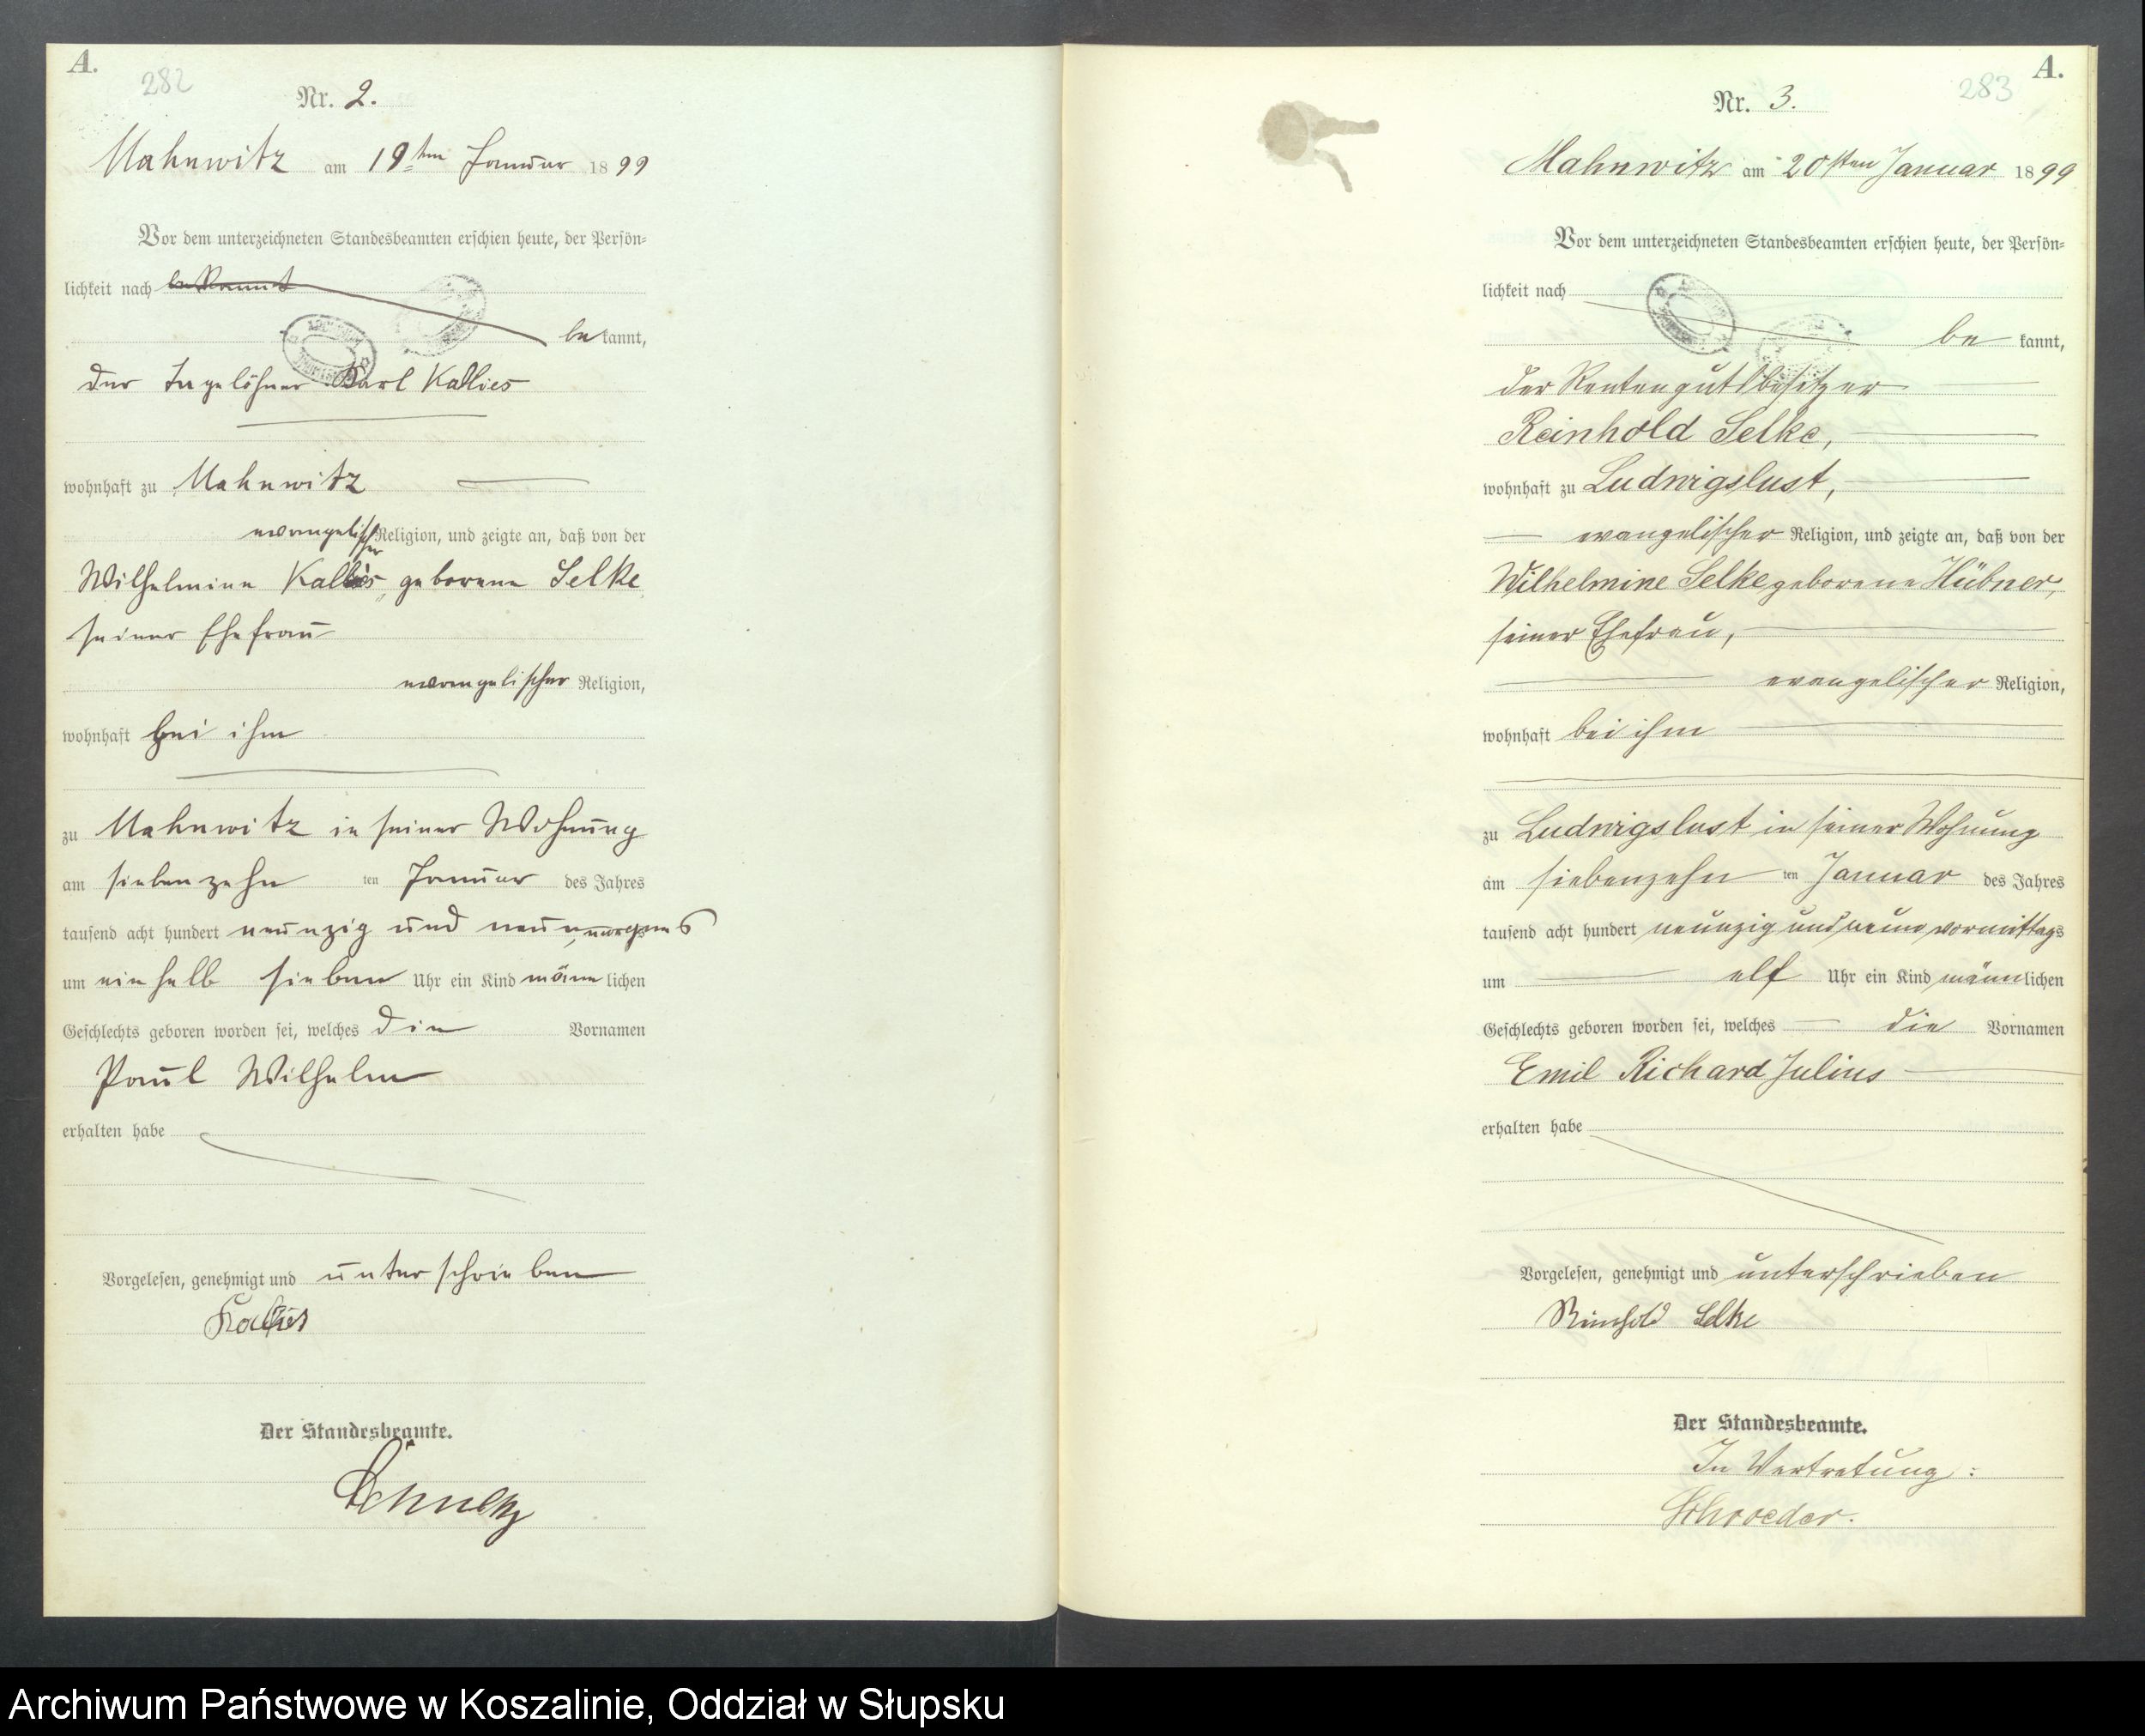 A.
282
Nr. 2.
Mahnwitz am 19ten Januar 1899
Vor dem unterzeichneten Standesbeamten erschien heute, der Persön-
lichkeit nach bekannt
bekannt,
der Tagelöhner Karl Kallies
wohnhaft zu Mahnwitz
evangelischer Religion, und zeigte an, daß von der
Wilhelmine Kallies, geborene Selke
seiner Ehefrau
evangelischer Religion,
wohnhaft bei ihm
zu Mahnwitz in seiner Wohnung
am siebenzehn ten Januar des Jahres
tausend acht hundert neunzig und neun, morgens
um einhalb sieben Uhr ein Kind männlichen
Geschlechts geboren worden sei, welches die Vornamen
Paul Wilhelm
erhalten habe
Vorgelesen, genehmigt und unterschrieben
Kallies
Der Standesbeamte.
A.
283
Nr. 3.
Mahnwitz am 20sten Januar 1899
Vor dem unterzeichneten Standesbeamten erschien heute, der Persön-
lichkeit nach
bekannt,
der Rentengutsbesitzer
Reinhold Selke,
wohnhaft zu Ludwigslust,
evangelischer Religion, und zeigte an, daß von der
Wilhelmine Selke geborene Hübner,
seiner Ehefrau,
evangelischer Religion,
wohnhaft bei ihm
zu Ludwigslust in seiner Wohnung
am siebenzehn ten Januar des Jahres
tausend acht hundert neunzig und neun vormittags
um elf Uhr ein Kind männlichen
Geschlechts geboren worden sei, welches die Vornamen
Emil Richard Julius
erhalten habe
Vorgelesen, genehmigt und unterschrieben
Reinhold Selke
Der Standesbeamte.
In Vertretung:
Schroeder.
Archiwum Państwowe w Koszalinie, Oddział w Słupsku